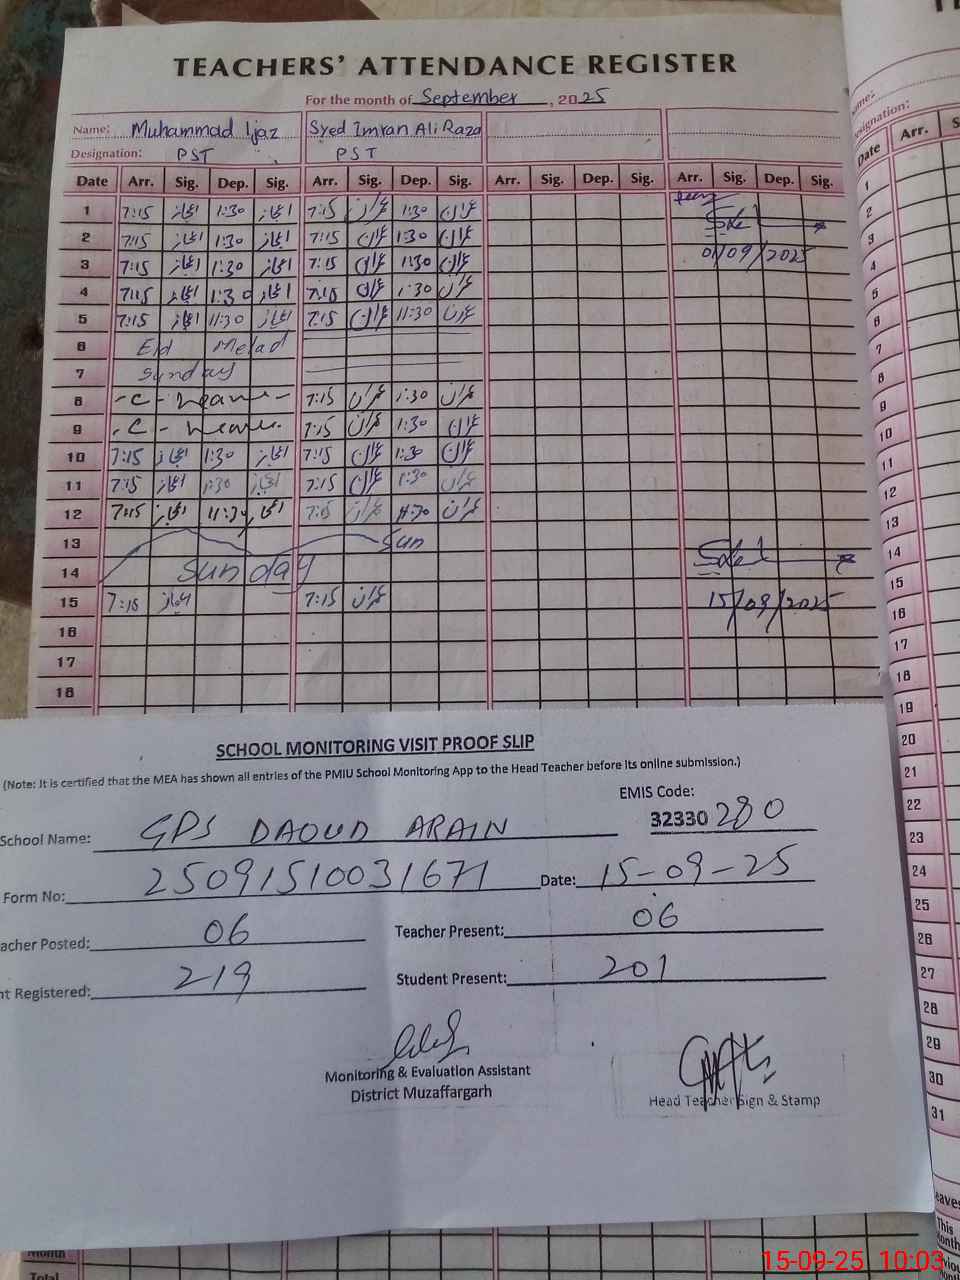 TEACHERS' ATTENDANCE REGISTER
For the month of September, 2025
Name: Muhammad Ijaz Syed Imran Ali Raza
Designation: PST PST
Date Arr. Sig. Dep. Sig. Arr. Sig. Dep. Sig. Arr. Sig. Dep. Sig. Arr. Sig. Dep. Sig.
1 7:15 اعجاز 1:30 اعجاز 7:15 عمران 1:30 عمران
2 7:15 اعجاز 1:30 اعجاز 7:15 عمران 1:30 عمران
3 7:15 اعجاز 1:30 اعجاز 7:15 عمران 1:30 عمران 01/09/2025
4 7:15 اعجاز 1:30 اعجاز 7:15 عمران 1:30 عمران
5 7:15 اعجاز 11:30 اعجاز 7:15 عمران 11:30 عمران
6 Eid Melad
7 Sunday
8 - C - Leave - 7:15 عمران 1:30 عمران
9 - C - Leave 7:15 عمران 1:30 عمران
10 7:15 اعجاز 1:30 اعجاز 7:15 عمران 1:30 عمران
11 7:15 اعجاز 1:30 اعجاز 7:15 عمران 1:30 عمران
12 7:15 اعجاز 11:30 اعجاز 7:15 عمران 11:30 عمران
13 Sun
14 Sunday
15 7:15 اعجاز 7:15 عمران 15/09/2025
16
17
18
SCHOOL MONITORING VISIT PROOF SLIP
(Note: It is certified that the MEA has shown all entries of the PMIU School Monitoring App to the Head Teacher before its online submission.)
EMIS Code:
32330 280
School Name: GPS DAOUD ARAIN
Form No: 25091510031671 Date: 15-09-25
acher Posted: 06 Teacher Present: 06
nt Registered: 219 Student Present: 201
Monitoring & Evaluation Assistant
District Muzaffargarh
Head Teacher Sign & Stamp
Month
Total
ame:
esignation:
Date Arr.
1
2
3
4
5
6
7
8
9
10
11
12
13
14
15
16
17
18
19
20
21
22
23
24
25
26
27
28
29
30
31
eaves
This
Month
15-09-25 10:03